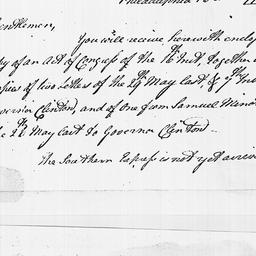 Philadelphia
Gentlemen,
You will receive herewith enclos
py of an Act of Congress of the 16th Inst. together
opies of two Letters of the 29th May last & 7th Ins
overnor Clinton, and of one from Samuel
26th May last to Governor Clinton.
The Southern Express is not yet arriv